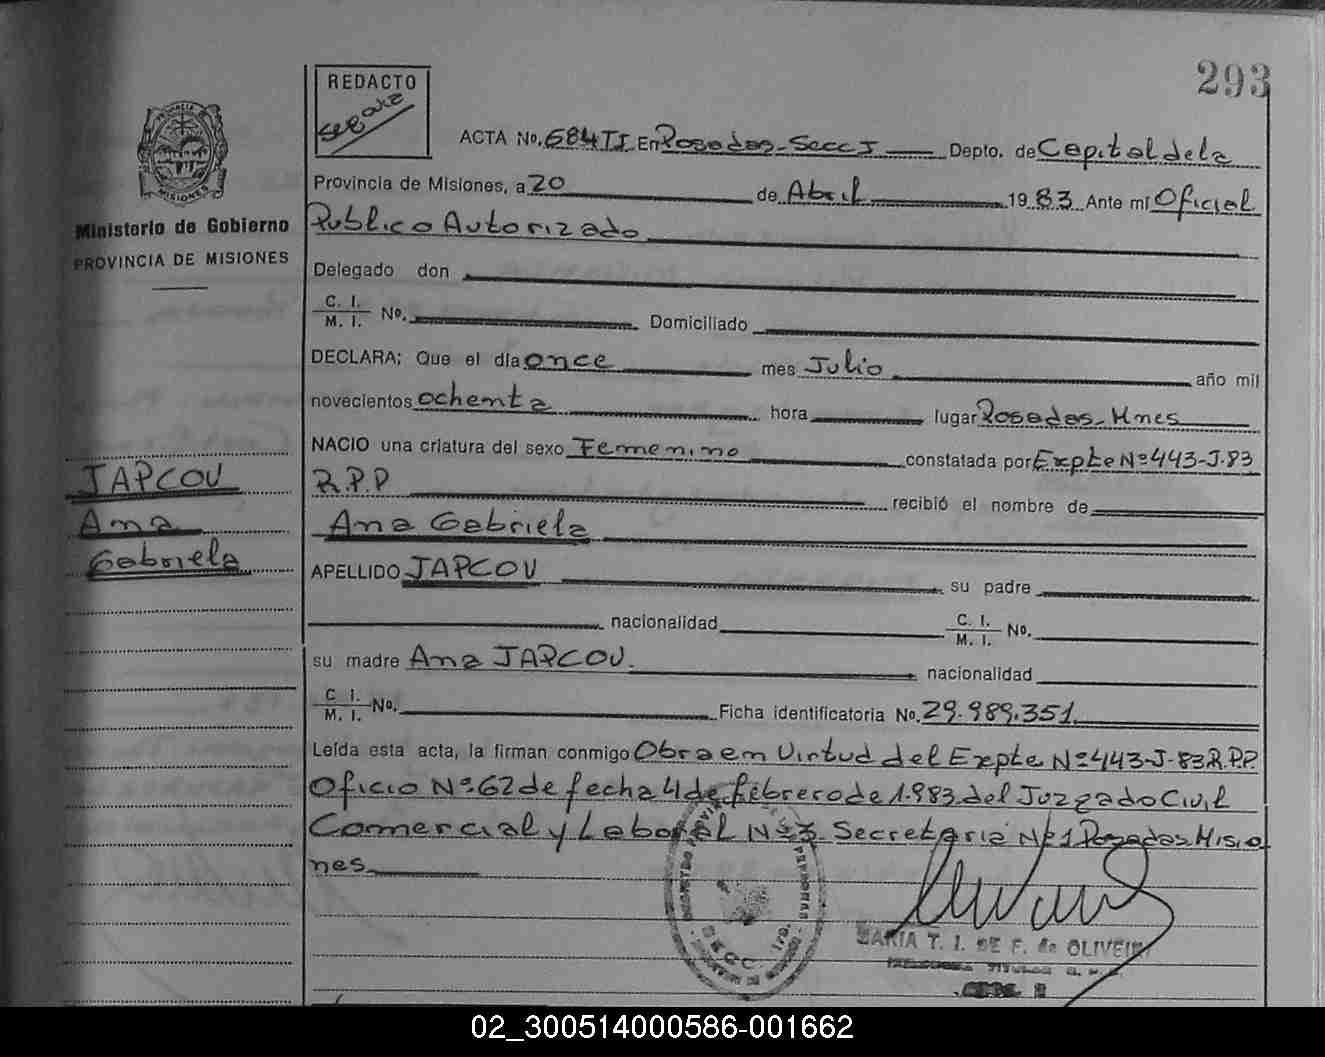 293
REDACTO
ACTA No. 684 TI En Posadas - Secc I Depto. de Capital de la
Provincia de Misiones, a 20 de Abril 1983 Ante mí Oficial
MISIONES
Ministerio de Gobierno
PROVINCIA DE MISIONES
Publico Autorizado
Delegado don
C. I.
M. I. No. Domiciliado
DECLARA; Que el día once mes Julio año mil
novecientos ochenta hora lugar Posadas - Mnes
NACIO una criatura del sexo Femenino constatada por Expte Nº 443-J-83
R.P.P recibió el nombre de
Ana Gabriela
JAPCOU
Ana
Gabriela
APELLIDO JAPCOU su padre
nacionalidad C. I.
M. I. No.
su madre Ana JAPCOU. nacionalidad
C I.
M. I. No. Ficha identificatoria No. 29.989.351
Leída esta acta, la firman conmigo Obra en Virtud del Expte Nº 443-J-83 R.P.P.
Oficio Nº 62 de fecha 4 de febrero de 1.983 del Juzgado Civil
Comercial y Laboral Nº 3 Secretaria Nº 1 Posadas Misio
nes
MARIA T. I. DE F. de OLIVEIRA
02_300514000586-001662